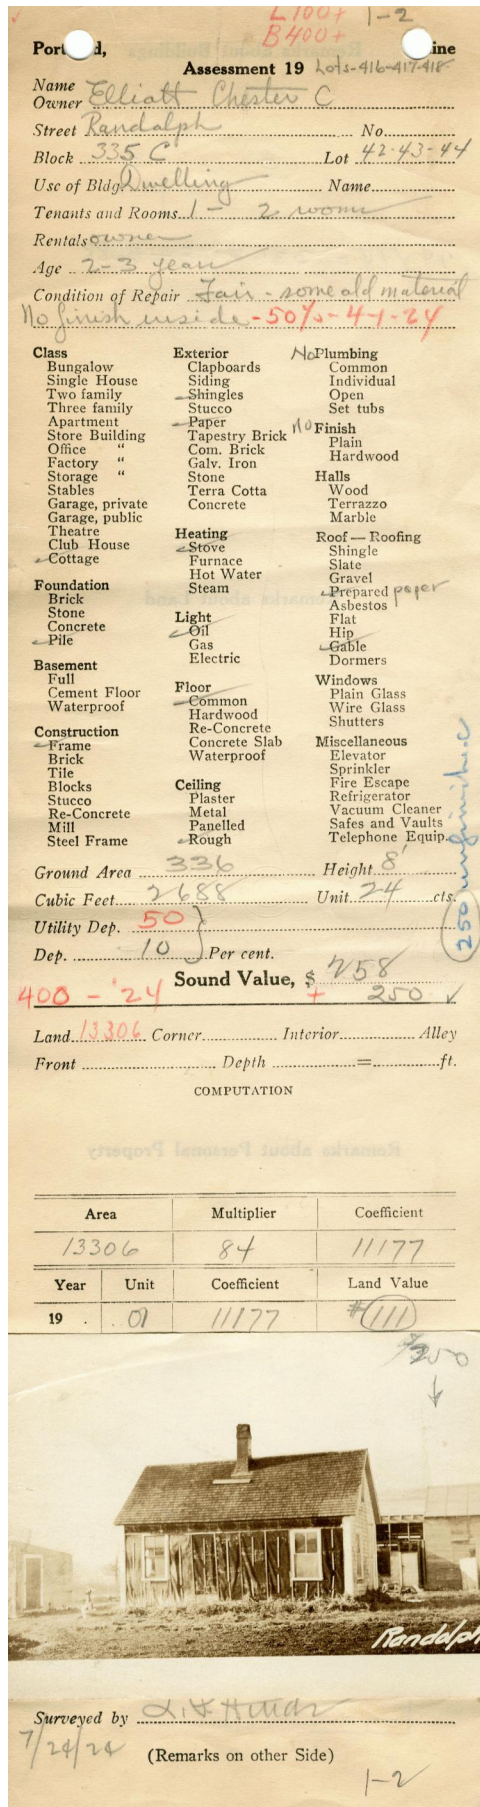 L 100+ 1-2
B 400+
Port d, ine
Assessment 19 Lots-416-417-418
Name
Owner Elliott Chester C
Street Randolph No.
Block 335 C Lot 42-43-44
Use of Bldg. Dwelling Name
Tenants and Rooms 1 - 2 rooms
Rentals owner
Age 2-3 years
Condition of Repair Fair - some old material
No finish inside - 50% - 4-1-24
Class
Bungalow
Single House
Two family
Three family
Apartment
Store Building
Office "
Factory "
Storage "
Stables
Garage, private
Garage, public
Theatre
Club House
Cottage
Foundation
Brick
Stone
Concrete
Pile
Basement
Full
Cement Floor
Waterproof
Construction
Frame
Brick
Tile
Blocks
Stucco
Re-Concrete
Mill
Steel Frame
Exterior
Clapboards
Siding
Shingles
Stucco
Paper
Tapestry Brick
Com. Brick
Galv. Iron
Stone
Terra Cotta
Concrete
Heating
Stove
Furnace
Hot Water
Steam
Light
Oil
Gas
Electric
Floor
Common
Hardwood
Re-Concrete
Concrete Slab
Waterproof
Ceiling
Plaster
Metal
Panelled
Rough
No Plumbing
Common
Individual
Open
Set tubs
No Finish
Plain
Hardwood
Halls
Wood
Terrazzo
Marble
Roof — Roofing
Shingle
Slate
Gravel
Prepared paper
Asbestos
Flat
Hip
Gable
Dormers
Windows
Plain Glass
Wire Glass
Shutters
Miscellaneous
Elevator
Sprinkler
Fire Escape
Refrigerator
Vacuum Cleaner
Safes and Vaults
Telephone Equip.
250 unfinished
Ground Area 336 Height 8'
Cubic Feet 2688 Unit 24 cts.
Utility Dep. 50
Dep. 10 Per cent.
Sound Value, $ 258
400 - '24 + 250
Land 13306 Corner Interior Alley
Front Depth = ft.
COMPUTATION
Remarks about Personal Property
Area Multiplier Coefficient
13306 84 11177
Year Unit Coefficient Land Value
19 .01 11177 $111
$250
Randolph
Surveyed by
7/24/24
(Remarks on other Side)
1-2